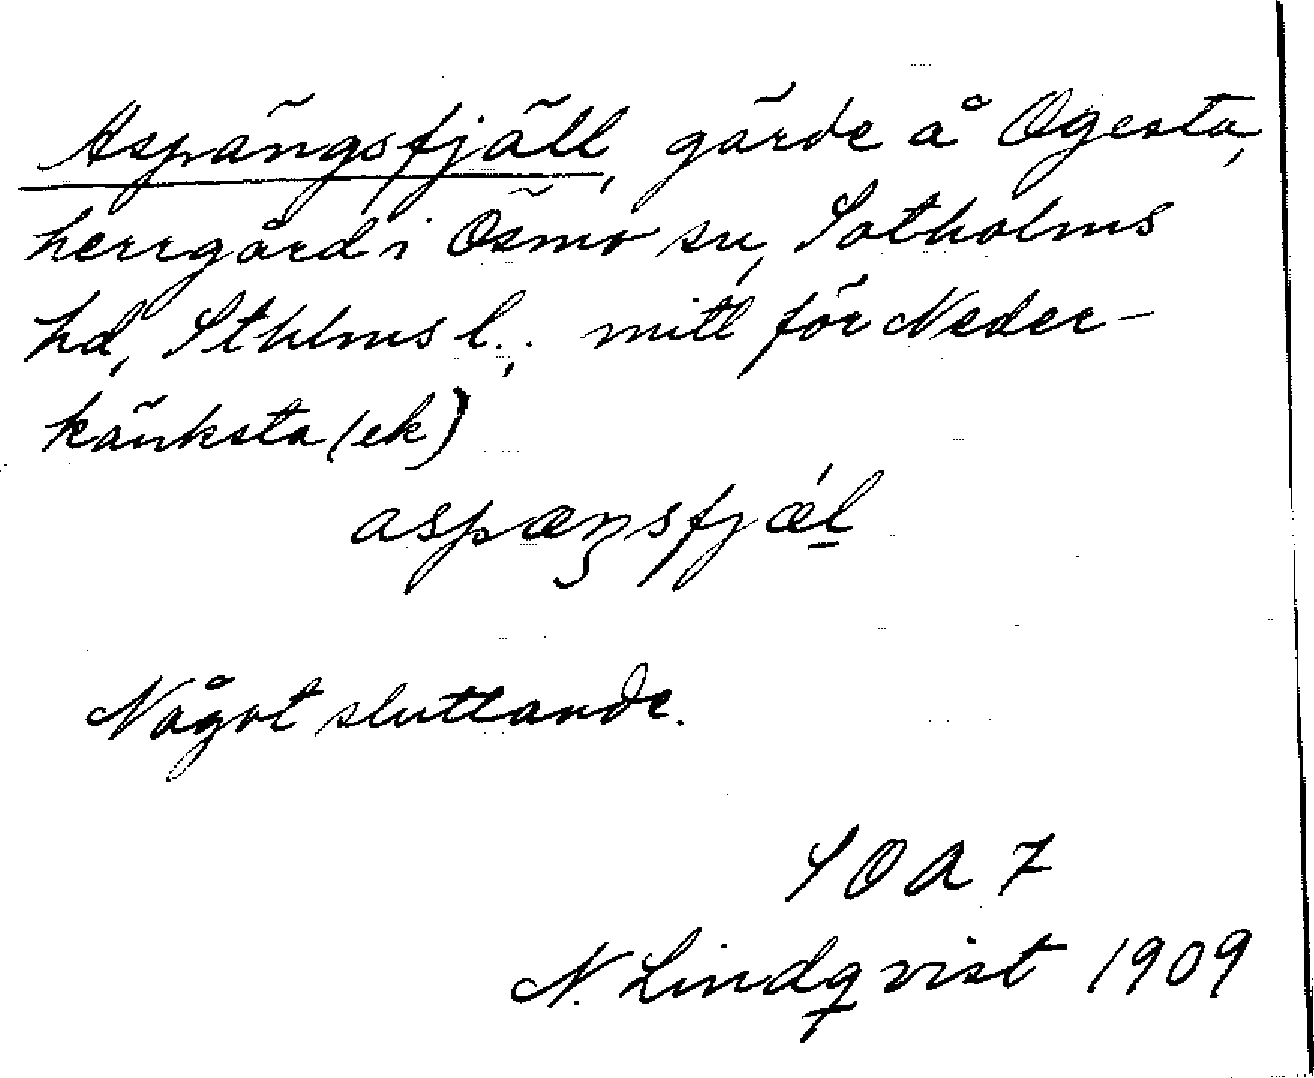 Aspängsfjäll, gärde å Ogesta,
herrgård i Ösmo sn, Sotholms
hd, Sthlms l.; mitt för Neder-
känksta (ek)
aspæŋsfjæ̀l
Något sluttande.
SOA 7
N. Lindqvist 1909